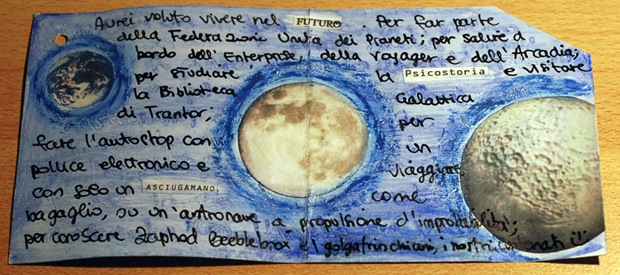 Aurei voluto vivere nel FUTURO Per far parte
della Federazione Unita dei Pianeti; per salire a
bordo dell'Enterprise, della Voyager e dell'Arcadia;
per studiare la Psicostoria e visitare
la Biblioteca Galattica
di Trantor, per
fare l'autostop con un
pollice elettronico e viaggiare
con solo un ASCIUGAMANO come
bagaglio, su un'astronave a propulsione d'improbabilità;
per conoscere Zaphod Beeblebrox e i golgafrinchiani, i nostri antenati :)